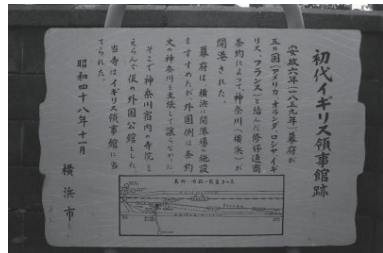 初代イギリス領事館跡
安政六年(一八五九年)幕府が
五ヵ国(アメリカ、オランダ、ロシヤ、イギ
リス、フランス)と結んだ修好通商
条約によって、神奈川(横浜)が
開港された。
幕府は、横浜に開港場の施設
をすすめたが外国側は条約
文の神奈川を主張して譲らなかった
そこで神奈川宿内の寺院を
えらんで仮の外国公館とした。
当寺はイギリス領事館に当
てられた。
昭和四十八年十一月
横浜市